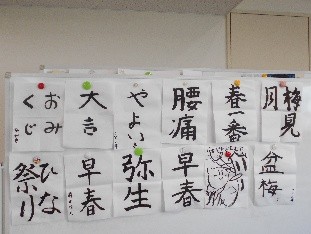 おみ
くじ
大吉
やよい
腰痛
春一番
梅見
月
ひな
祭り
早春
弥生
早春
盆梅